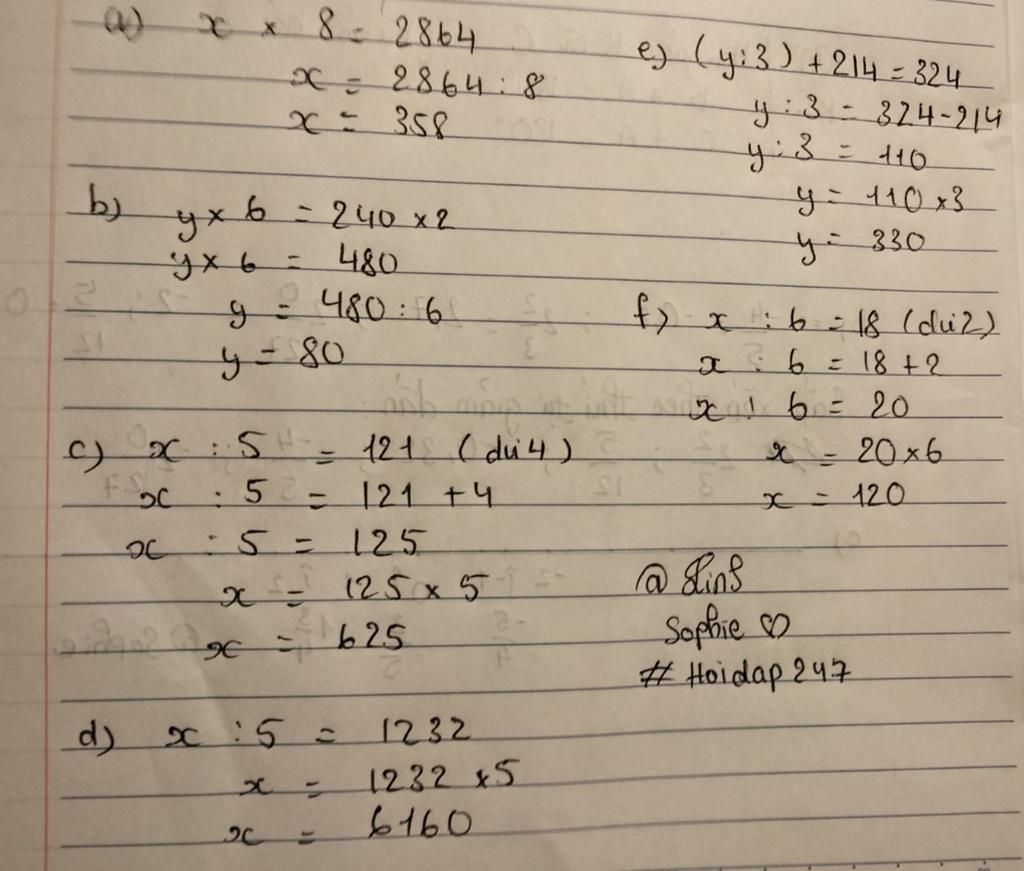 a) x × 8 = 2864
x = 2864 : 8
x = 358
b) y × 6 = 240 × 2
y × 6 = 480
y = 480 : 6
y = 80
c) x : 5 = 121 (dư 4)
x : 5 = 121 + 4
x : 5 = 125
x = 125 × 5
x = 625
d) x : 5 = 1232
x = 1232 × 5
x = 6160
e) (y : 3) + 214 = 324
y : 3 = 324 - 214
y : 3 = 110
y = 110 × 3
y = 330
f) x : 6 = 18 (dư 2)
x : 6 = 18 + 2
x : 6 = 20
x = 20 × 6
x = 120
@
Sophie ♡
# Hoidap 247